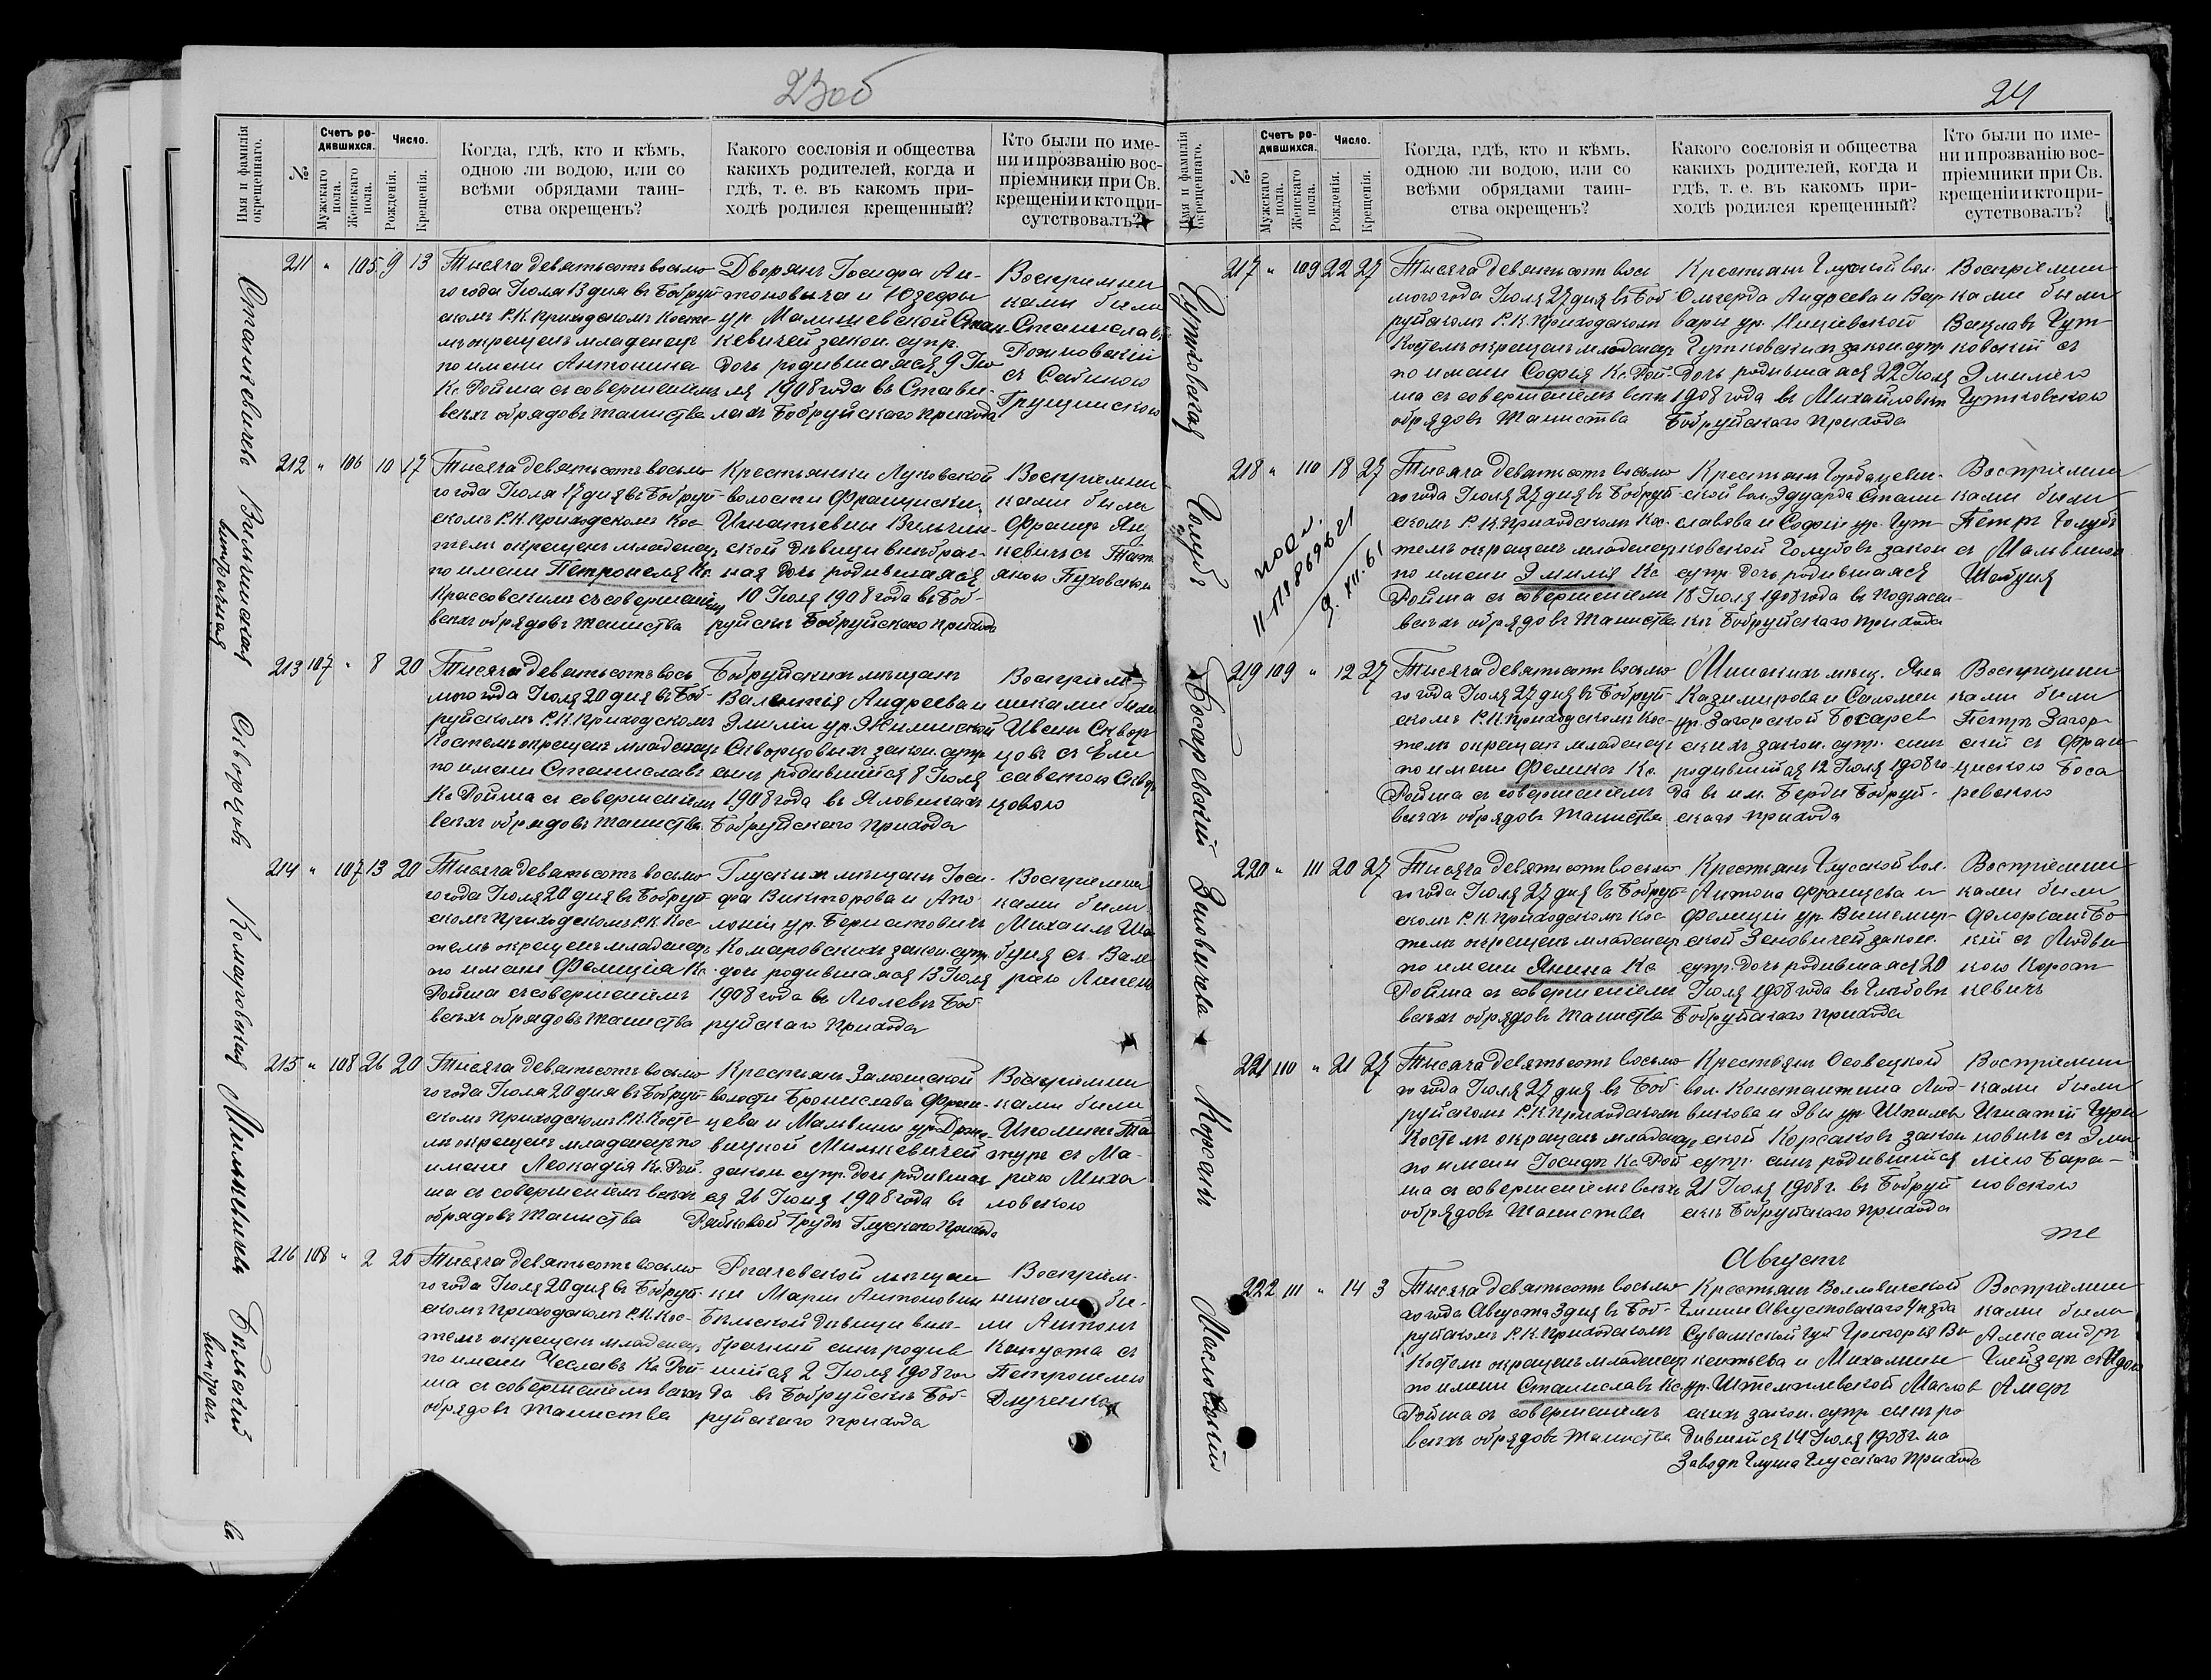 23об
Имя и фамилія окрещеннаго.
№
Счетъ ро-
дившихся.
Мужскаго пола.
Женскаго пола.
Число.
Рожденія.
Крещенія.
Когда, гдѣ, кто и кѣмъ,
одною ли водою, или со
всѣми обрядами таин-
ства окрещенъ?
Какого сословія и общества
какихъ родителей, когда и
гдѣ, т. е. въ какомъ при-
ходѣ родился крещенный?
Кто были по име-
ни и прозванію вос-
пріемники при Св.
крещеніи и кто при-
сутствовалъ?
Станкевичева
211 " 105 9 13
Тысяча девятьсотъ восьмо
го года Іюля 13 дня въ Бобруй
скомъ Р.К. приходскомъ Косте-
лѣ окрещенъ младенецъ
по имени Антонина
Кс. Ройша съ совершеніемъ
всѣхъ обрядовъ таинства
Дворянъ Іосифа Ан-
тоновича и Юзефы
ур. Малишевской Стан
кевичей закон. супр.
дочь родившаяся 9 Ію
ля 1908 года въ Стави-
лахъ Бобруйскаго прихода
Воспріемни
ками были
Станиславъ
Рожновскій
съ Сабиною
Грущинскою
Вильчинская
внѣбрачная
212 " 106 10 17
Тысяча девятьсотъ восьмо
го года Іюля 17 дня въ Бобруй-
скомъ Р.К. приходскомъ Кос-
телѣ окрещенъ младенецъ
по имени Петронеля Кс.
Крассовскимъ съ совершеніемъ
всѣхъ обрядовъ таинства
Крестьянки Луковской
волости Францишки
Игнатьевны Вильчин-
ской дѣвицы внѣбрач-
ная дочь родившаяся
10 Іюля 1908 года въ Боб-
руйскѣ Бобруйскаго прихода
Воспріемни
ками были
Францъ Ян
кевичъ съ Тать
яною Пуховскою
Скворцовъ
213 107 " 8 20
Тысяча девятьсотъ вось
мого года Іюля 20 дня въ Боб-
руйскомъ Р.К. приходскомъ
Костелѣ окрещенъ младенецъ
по имени Станиславъ
Кс. Ройша съ совершеніемъ
всѣхъ обрядовъ таинства
Бобруйскихъ мѣщанъ
Валентія Андреева и
Эмиліи ур. Жилинской
Скворцовыхъ закон. супр.
сынъ родившійся 8 Іюля
1908 года въ Яловикахъ
Бобруйскаго прихода
Воспріем-
никами были
Иванъ Сквор
цовъ съ Ели
саветою Сквор
цовою
Комаровская
214 " 107 13 20
Тысяча девятьсотъ восьмо
го года Іюля 20 дня въ Бобруй
скомъ приходскомъ Р.К. Кос-
телѣ окрещенъ младенецъ
по имени Фелиція Кс.
Ройша съ совершеніемъ
всѣхъ обрядовъ таинства
Глускихъ мѣщанъ Іоси-
фа Викторова и Апо-
лоніи ур. Бернатовичъ
Комаровскихъ закон. супр.
дочь родившаяся 13 Іюля
1908 года въ Люлевѣ Боб
руйскаго прихода
Воспріемни
ками были
Михаилъ Ша
буня съ Вале
ріею
Милькевичева
215 " 108 26 20
Тысяча девятьсотъ восьмо
го года Іюля 20 дня въ Бобруй
скомъ приходскомъ Р.К. Косте-
лѣ окрещенъ младенецъ по
имени Леокадія Кс. Рой-
ша съ совершеніемъ всѣхъ
обрядовъ таинства
Крестьянъ
волости Бронислава Фран-
цева и Мальвины ур.
вицкой Милькевичей
закон. супр. дочь родившая
ся 26 Іюня 1908 года въ
Райковой Грудѣ Глускаго прихода
Воспріемни
ками были
съ Ма-
ріею Миха
ловскою
Бѣльскій
внѣбрач.
216 108 " 2 20
Тысяча девятьсотъ восьмо
го года Іюля 20 дня въ Бобруй-
скомъ приходскомъ Р.К. Кос-
телѣ окрещенъ младенецъ
по имени Чеславъ Кс. Рой-
ша съ совершеніемъ всѣхъ
обрядовъ таинства
Рогачевской мѣщан
ки Маріи Антоновны
Бѣльской дѣвицы внѣ-
брачный сынъ родив
шійся 2 Іюля 1908 го
да въ Бобруйскѣ Боб
руйскаго прихода
Воспріем-
никами бы-
ли Антонъ
Капуста съ
Петронелею
24
Имя и фамилія окрещеннаго.
№
Счетъ ро-
дившихся.
Мужскаго пола.
Женскаго пола.
Число.
Рожденія.
Крещенія.
Когда, гдѣ, кто и кѣмъ,
одною ли водою, или со
всѣми обрядами таин-
ства окрещенъ?
Какого сословія и общества
какихъ родителей, когда и
гдѣ, т. е. въ какомъ при-
ходѣ родился крещенный?
Кто были по име-
ни и прозванію вос-
пріемники при Св.
крещеніи и кто при-
сутствовалъ?
Гутковская
217 " 109 22 27
Тысяча девятьсотъ вось
мого года Іюля 27 дня въ Боб
руйскомъ Р.К. приходскомъ
Костелѣ окрещенъ младенецъ
по имени Софія Кс. Рой-
ша съ совершеніемъ всѣхъ
обрядовъ таинства
Крестьянъ Глуской вол.
Ольгерда Андреева и Вар
вары ур.
Гутковскихъ закон. супр.
дочь родившаяся 22 Іюля
1908 года въ Михайловѣ
Бобруйскаго прихода
Воспріемни
ками были
Вацлавъ Гут
ковскій съ
Эмиліею
Гутковскою
Голубъ
218 " 110 18 27
9. XII. 61
Тысяча девятьсотъ восьмо
го года Іюля 27 дня въ Бобруй
скомъ Р.К. приходскомъ Кос-
телѣ окрещенъ младенецъ
по имени Эмилія Кс
Ройша съ совершеніемъ
всѣхъ обрядовъ таинства
Крестьянъ Горбацеви-
ской вол. Эдуарда Стани
славова и Софіи ур. Гут-
ковской Голубовъ закон
супр. дочь родившаяся
18 Іюля 1908 года въ Подъясен-
кѣ Бобруйскаго прихода
Воспріемни
ками были
Петръ Голубъ
съ Мальвиною
Шабуня
Босаревскій
219 109 " 12 27
Тысяча девятьсотъ восьмо
го года Іюля 27 дня въ Бобруй-
скомъ Р.К. приходскомъ Кос-
телѣ окрещенъ младенецъ
по имени Феликсъ Кс.
Ройша съ совершеніемъ
всѣхъ обрядовъ таинства
Минскихъ мѣщ. Яна
Казимирова и Саломеи
ур. Загорской Босарев
скихъ закон. супр. сынъ
родившійся 12 Іюля 1908 го-
да въ им. Берди Бобруй-
скаго прихода
Воспріемни
ками были
Петръ Загор-
скій съ Фран
цискою Боса
ревскою
Зиновичева
220 " 111 20 27
Тысяча девятьсотъ восьмо
го года Іюля 27 дня въ Бобруй-
скомъ Р.К. приходскомъ Кос
телѣ окрещенъ младенецъ
по имени Янина Кс
Ройша съ совершеніемъ
всѣхъ обрядовъ таинства
Крестьянъ Глусской вол.
Антона Францева и
Фелиціи ур. Вишемир-
ской Зеновичей закон.
супр. дочь родившаяся 20
Іюля 1908 года въ Глебовѣ
Бобруйскаго прихода
Воспріемни
ками были
Флоріанъ Бо-
кій съ Людви
кою Корот
кевичъ
Корсакъ
221 110 " 21 27
Тысяча девятьсотъ восьмо
го года Іюля 27 дня въ Боб-
руйскомъ Р.К. приходскомъ
Костелѣ окрещенъ младенецъ
по имени Іосифъ Кс. Рой
ша съ совершеніемъ всѣхъ
обрядовъ таинства
Крестьянъ Осовецкой
вол. Константина Люд-
викова и Эвы ур. Шпилев
ской Корсаковъ закон
супр. сынъ родившійся
21 Іюля 1908 г. въ Бобруй
скѣ Бобруйскаго прихода
Воспріемни
ками были
Игнатій Гури
новичъ съ Эми
ліею Бара-
новскою
Августъ
Масловскій
222 111 " 14 3
Тысяча девятьсотъ восьмо
го года Августа 3 дня въ Боб-
руйскомъ Р.К. приходскомъ
Костелѣ окрещенъ младенецъ
по имени Станиславъ Кс.
Ройша съ совершеніемъ
всѣхъ обрядовъ таинства
Крестьянъ Волловичской
Гмины Августовскаго Уѣзда
Сувалкской губ Григорія Ви
кентьева и Михалины
ур. Штемплевской Маслов
скихъ закон. супр. сынъ ро
дившійся 14 Іюля 1908 г. на
Заводѣ Глуша Глусскаго прихода
Воспріемни
ками были
Александръ
Глейзеръ съ Идою
Амеръ